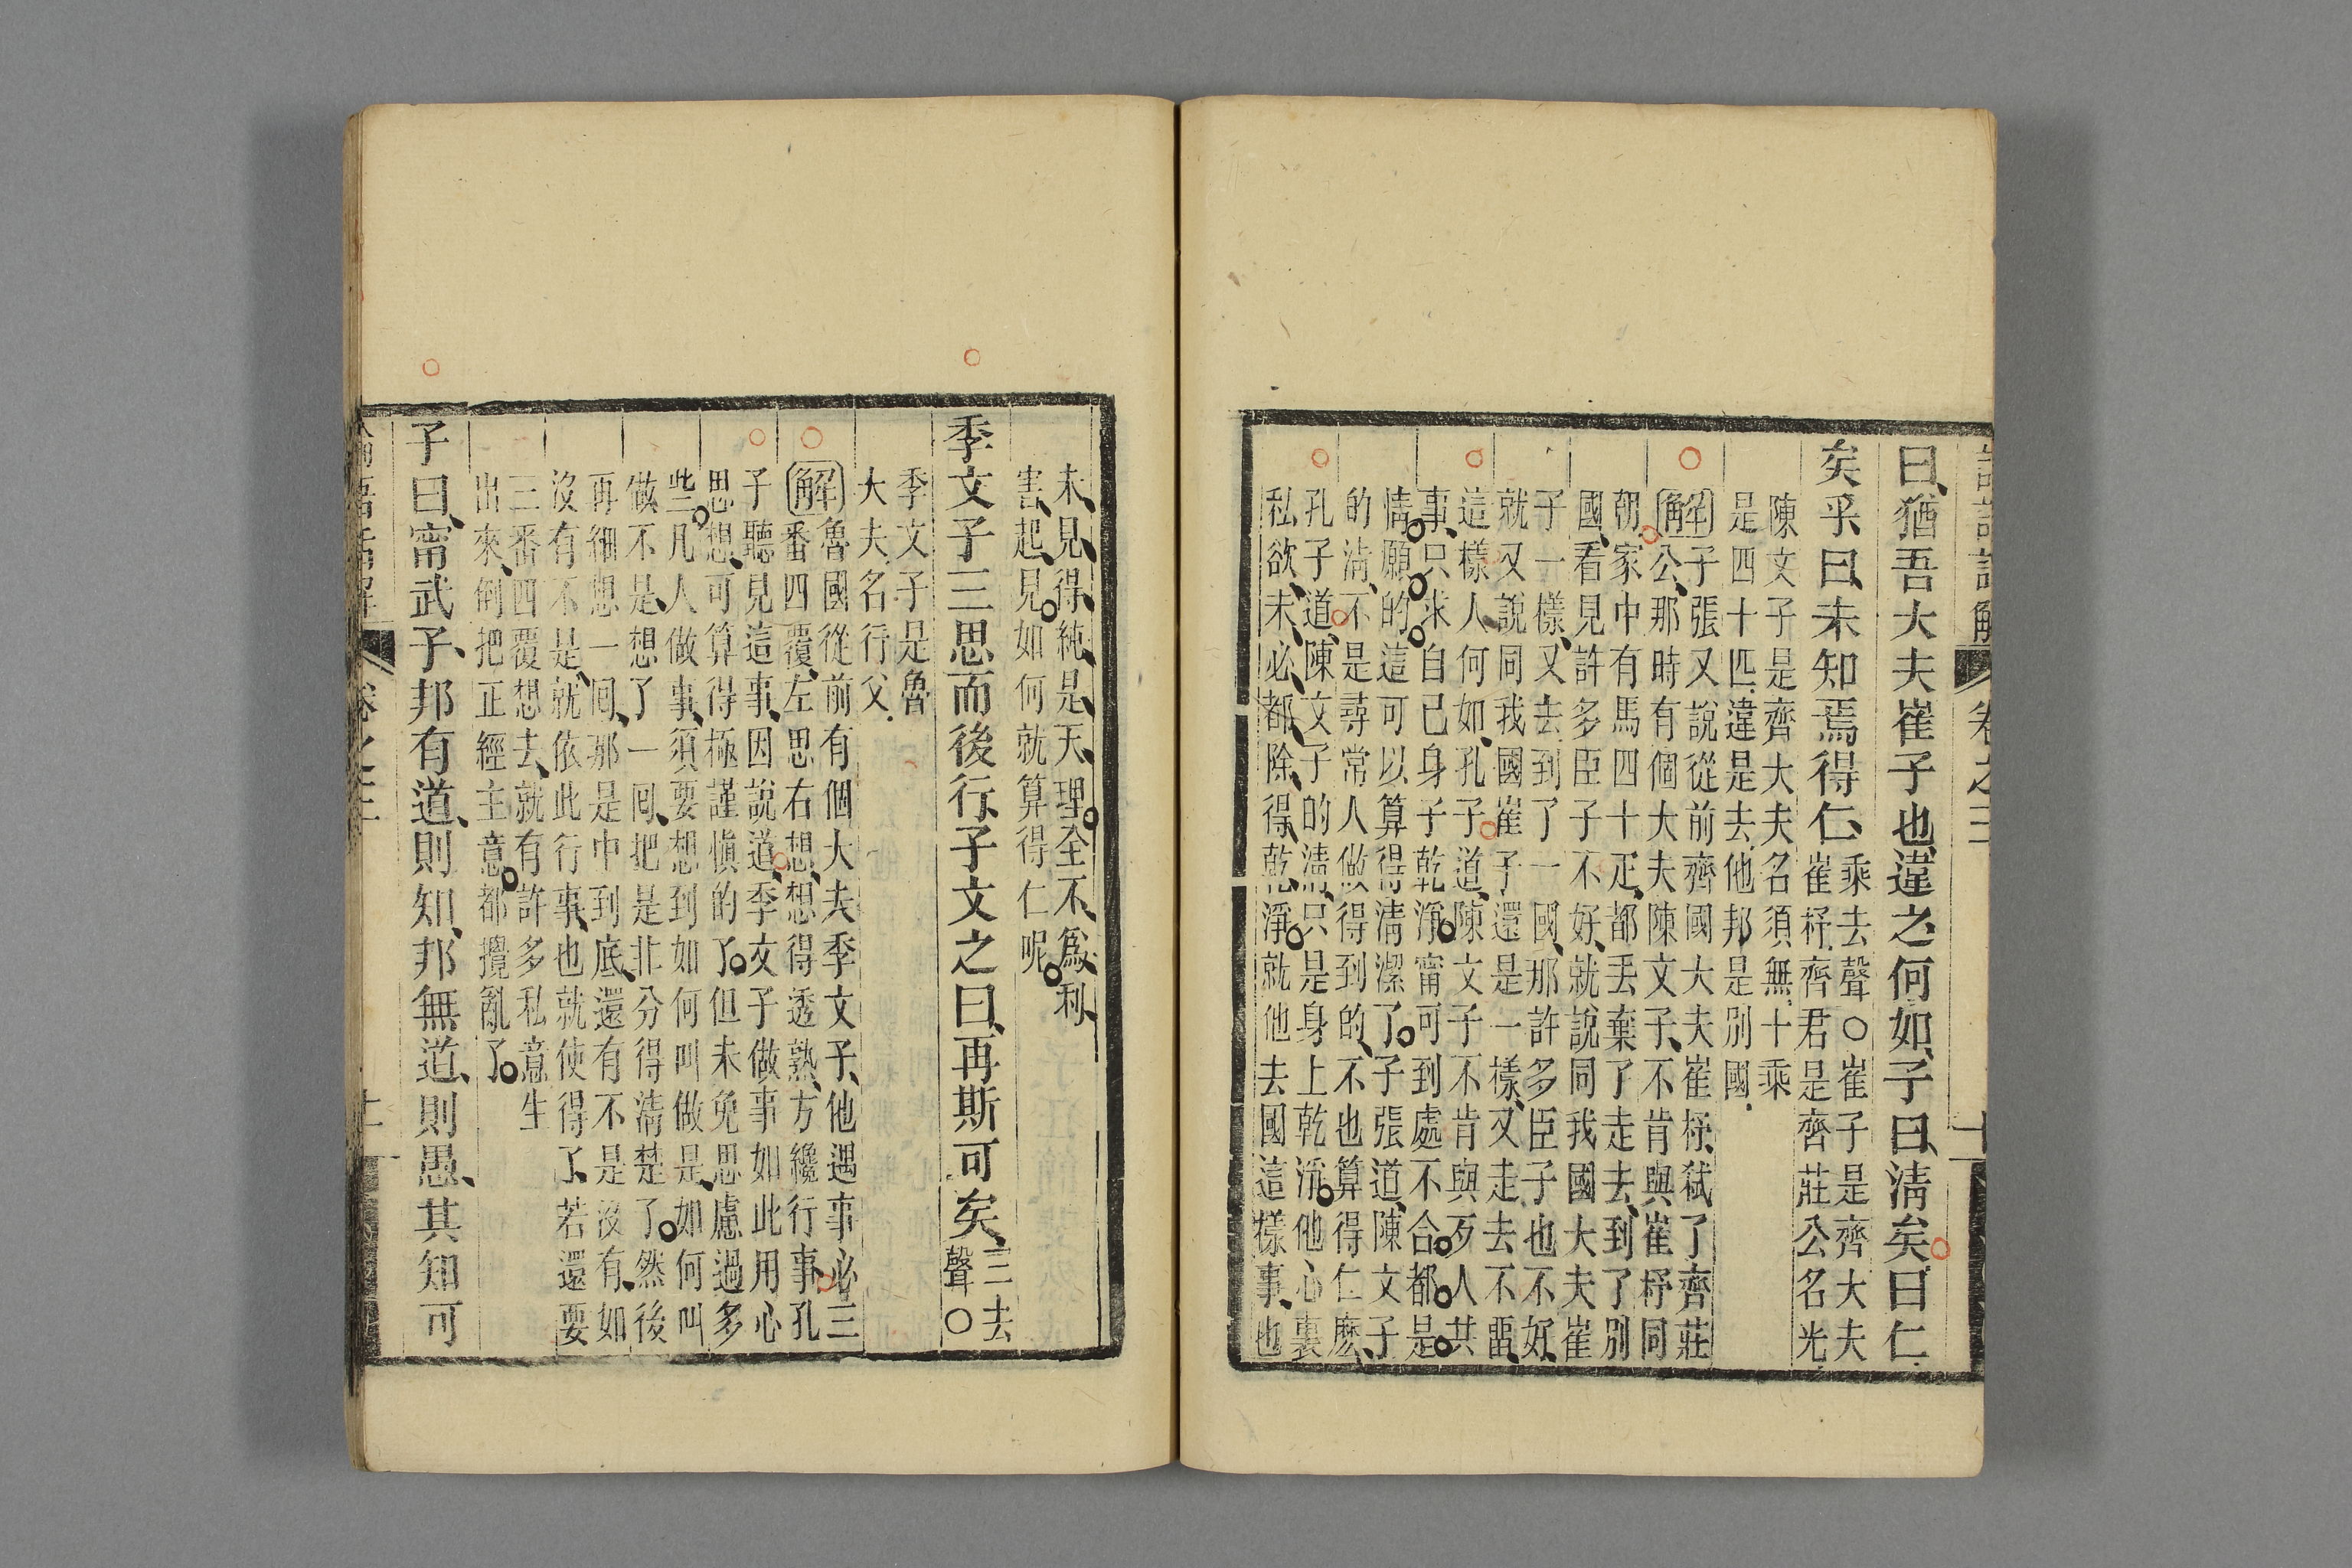 曰、猶吾大夫崔子也、違之何如、子曰、淸矣、曰仁
矣乎、曰、未知焉得仁、乘去聲○崔子是齊大夫
崔杼、齊君是齊莊公名光
陳文子是齊大夫名須無、十乘
是四十匹、違是去、他邦是別國、
解子張又說從前齊國大夫崔杼、弑了齊莊
公、那時有個大夫陳文子、不肯與崔杼同
朝、家中有馬四十疋、都丢棄了走去、到了別
國、看見許多臣子不好、就說同我國大夫崔
子一樣、又去到了一國、那許多臣子也不好、
就又說同我國崔子還是一樣、又走去不畱、
這樣人何如、孔子道、陳文子不肯與歹人共
事、只求自己身子乾淨、甯可到處不合、都是
情願的、這可以算得淸潔了、子張道、陳文子
的淸、不是尋常人做得到的、不也算得仁麼、
孔子道、陳文子的淸、只是身上乾淨、他心裏
私欲、未必都除得乾淨、就他去國這樣事、也
未見得純是天理、全不爲利
害起見、如何就算得仁呢、
季文子三思而後行、子文之曰、再斯可矣、三去
聲○
季文子是魯
大夫、名行父、
解魯國從前有個大夫季文子、他遇事必三
番四覆、左思右想、想得透熟、方纔行事、孔
子聽見這事、因說道、季文子做事如此用心
思想、可算得極謹愼的了、但未免思慮過多
些、凡人做事、須要想到如何叫做是、如何叫
做不是、想了一囘、把是非分得淸楚了、然後
再細想一囘、那是中到底、還有不是沒有、如
沒有不是、就依此行事、也就使得了、若還要
三番四覆想去、就有許多私意生
出來、倒把正經主意都攪亂了、
子曰、甯武子、邦有道、則知、邦無道、則愚、其知可
論語話解 卷之三